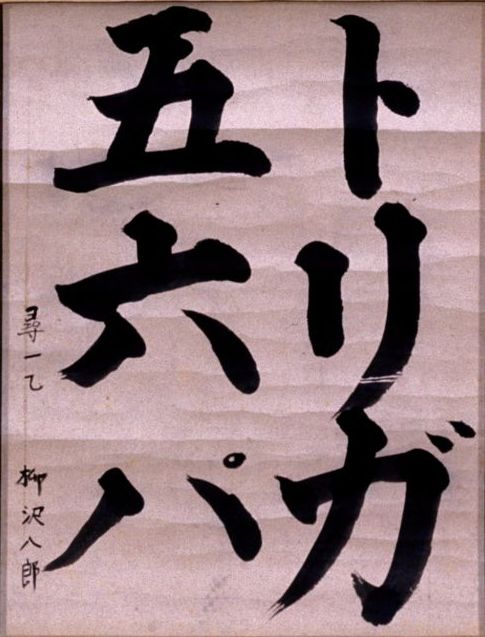 トリガ
五六パ
尋一乙 柳沢八郎